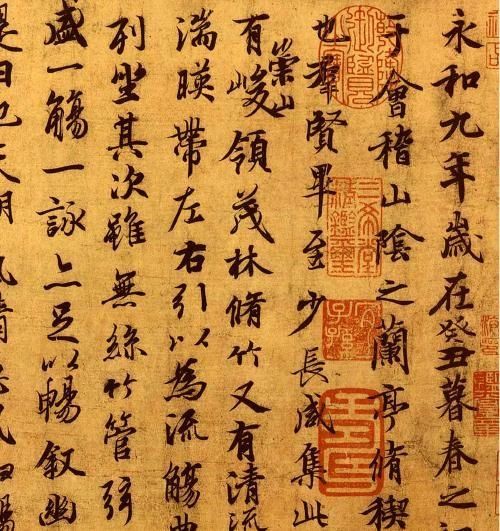 永和九年歲在癸丑暮春之
于會稽山陰之蘭亭脩稧
也羣賢畢至少長咸集此
有崇山峻領茂林脩竹又有清流
湍暎帶左右引以為流觴曲
列坐其次雖無絲竹管弦
盛一觴一詠亦足以暢叙幽
是日也天朗氣清惠風和暢
三希堂精鑑璽
宜子孫